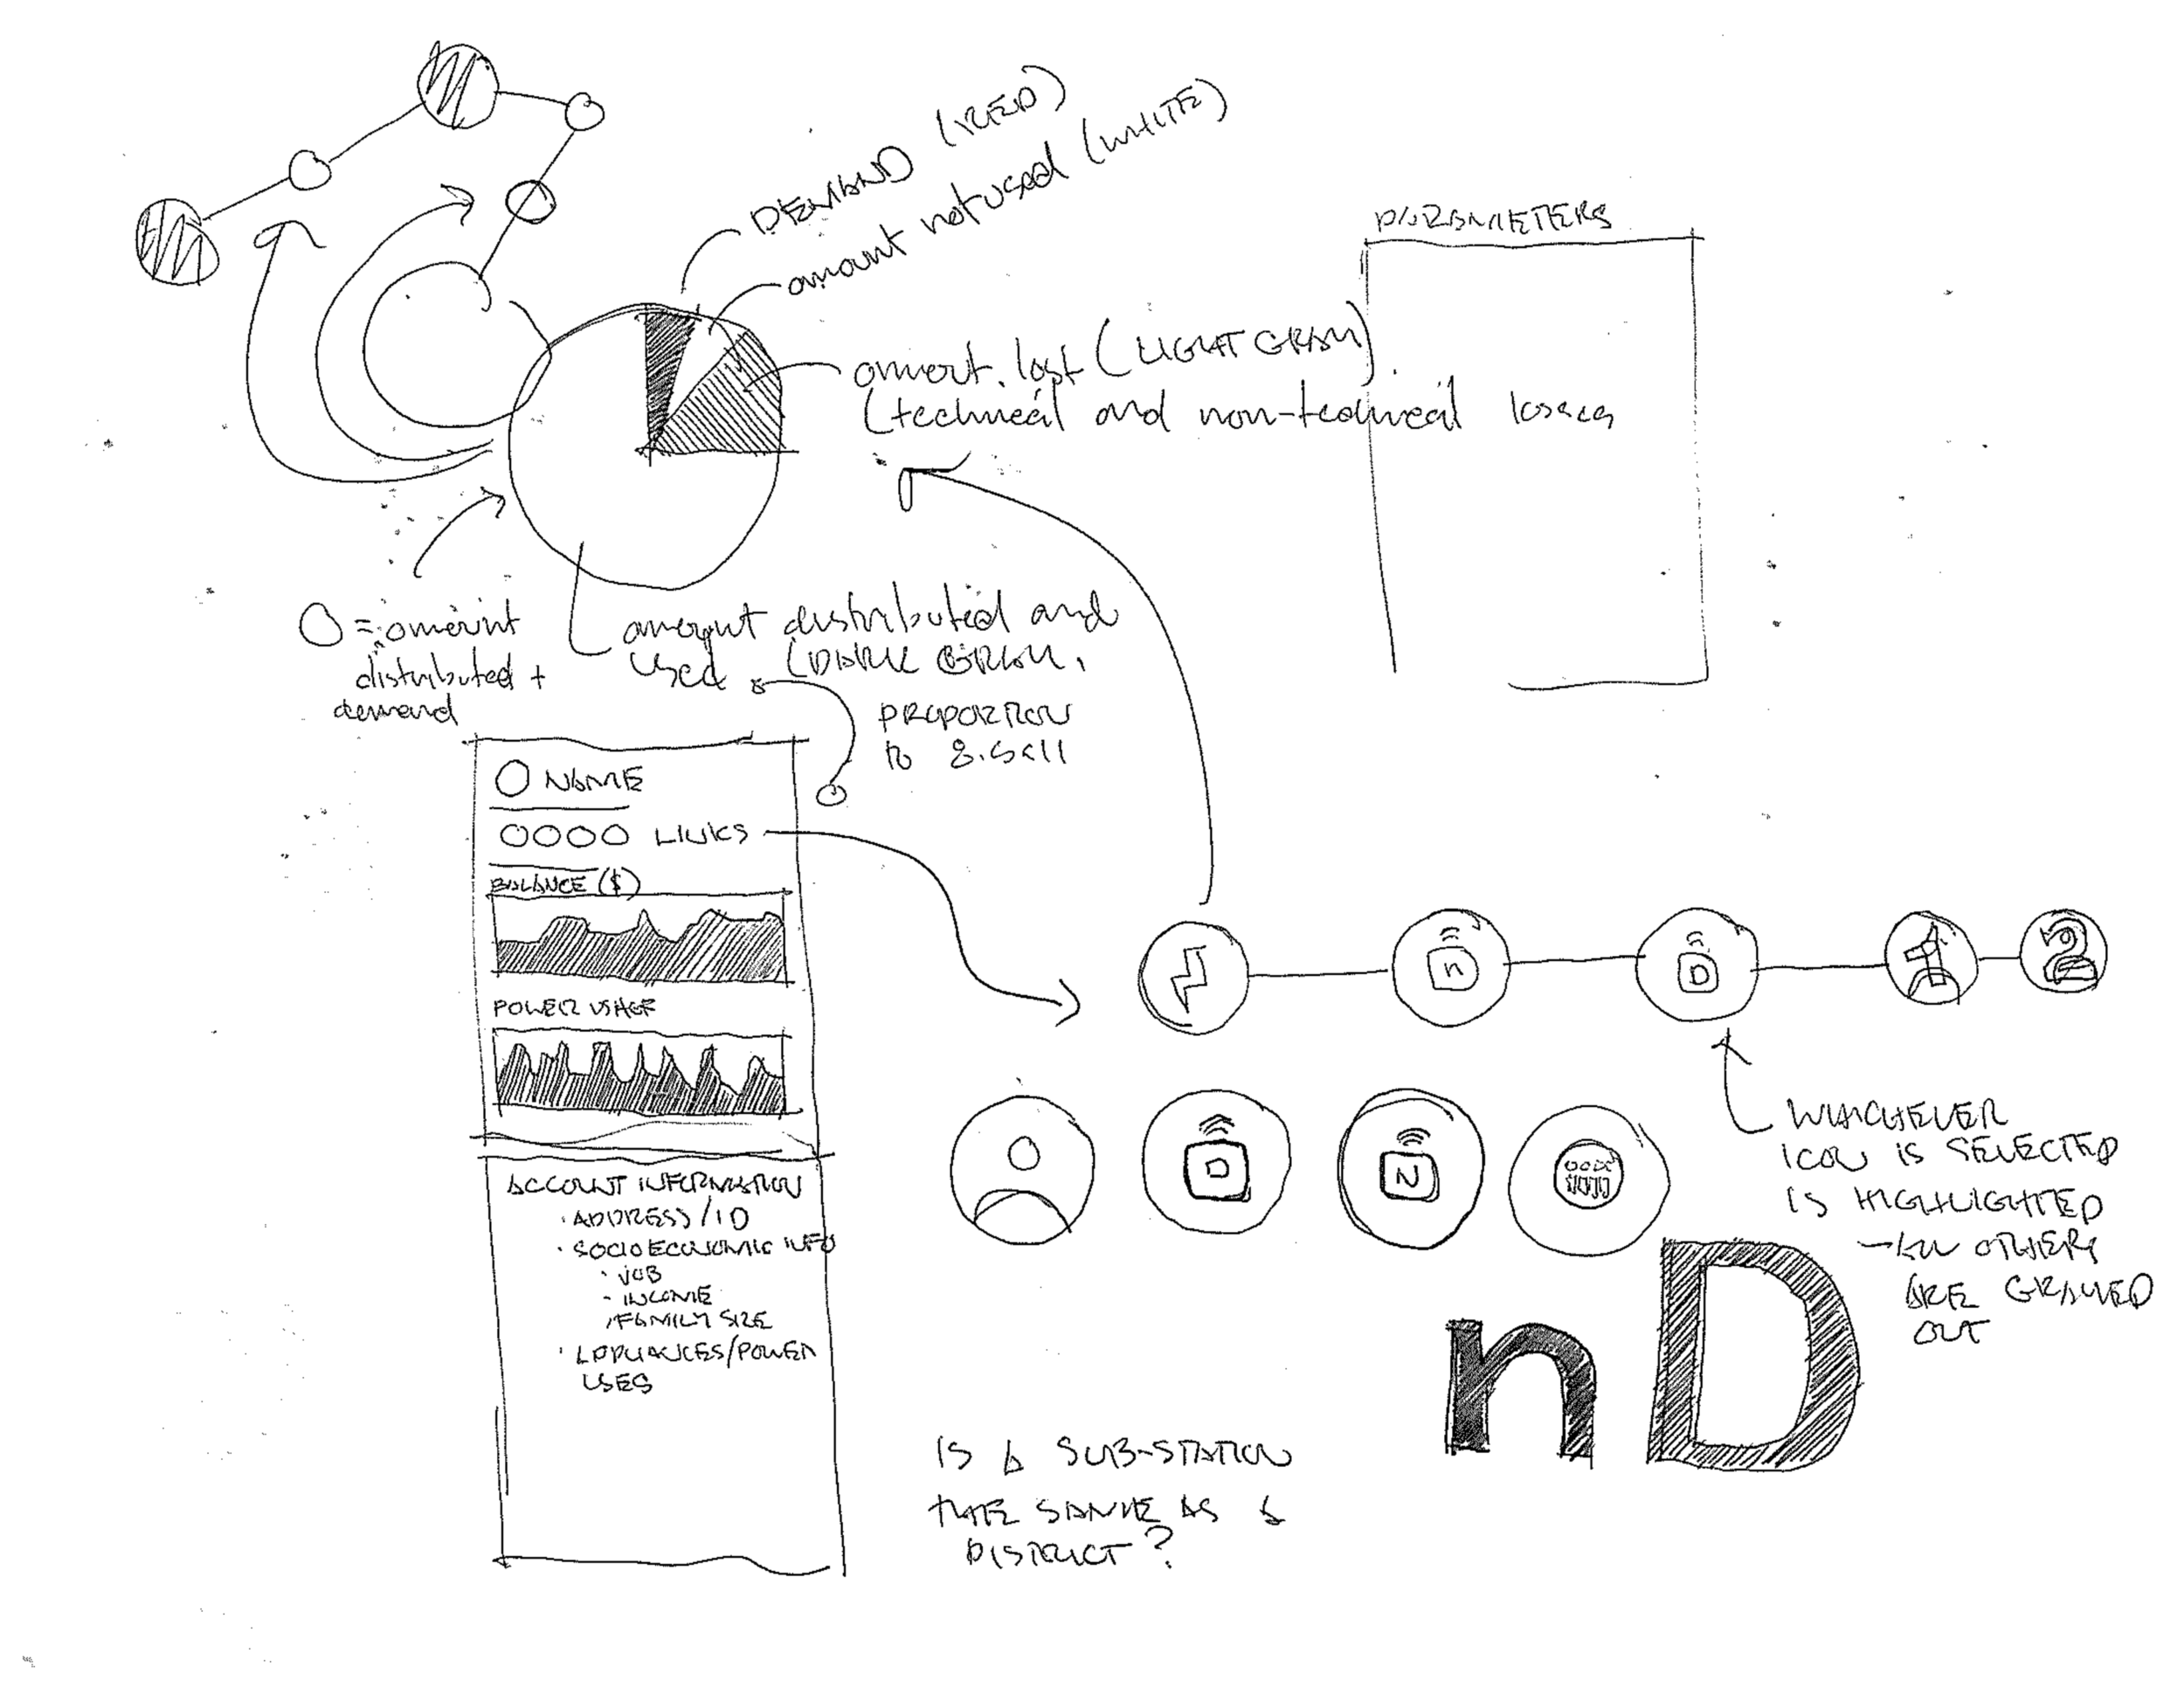 DEMAND (RED)
amount not used (WHITE)
PARAMETERS
amount lost (LIGHT GRAY)
(technical and non-technical losses
= amount
distributed +
demand
amount distributed and
used (DARK GRAY,
PROPORTION
TO
NAME
LINKS
BALANCE ($)
POWER USAGE
n
D
1
2
D
N
WHICHEVER
ICON IS SELECTED
IS HIGHLIGHTED
- ALL OTHERS
ARE GRAYED
OUT
ACCOUNT INFORMATION
· ADDRESS/ID
· SOCIOECONOMIC INFO
· JOB
· INCOME
· FAMILY SIZE
· APPLIANCES/POWER
USES
nD
IS A SUB-STATION
THE SAME AS A
DISTRICT?